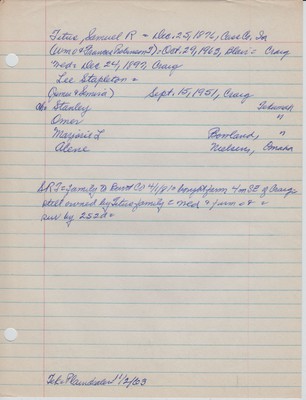 Titus, Samuel R - Dec. 25, 1876, Cass Co, Ia
(Wm & Frances Robinson T) - Oct. 29, 1963, Blair - Craig
Med = Dec 24, 1897, Craig
Lee Stapleton &
Sept. 15, 1951, Craig
ch: Stanley Tekamah
Omer "
Marjorie L Rowland, "
Alene Nielsen, Omaha
SRT = family to Burt Co 4/1/10 bought farm 4 m SE of Craig
still owned by Titus family = med & farm
sur by 2s2d
Tek-Plaindealer 11/2/63